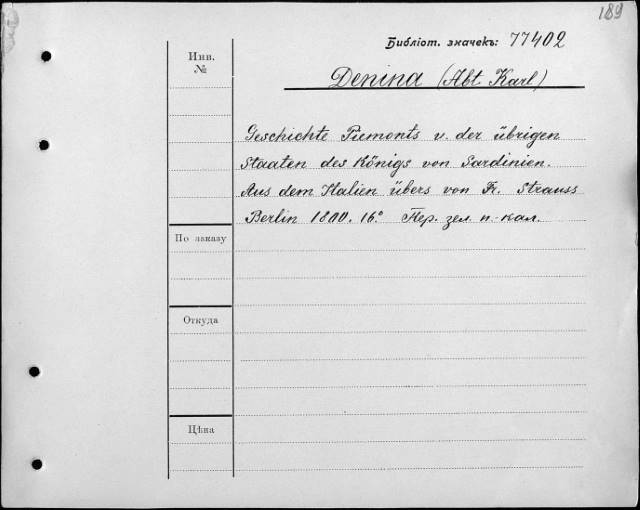 189
Библіот. значекъ: 77402
Инв.
№
Denina (Abt Karl)
Geschichte Piemonts u. der übrigen
Staaten des Königs von Sardinien.
Aus dem Italien übers von Fr. Strauss
Berlin 1800. 16° Пер. зел. п. кал.
По заказу
Откуда
Цѣна